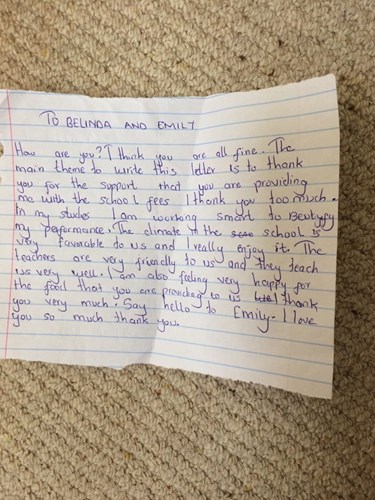 TO BELINDA AND EMILY
How are you? I think you are all fine. The
main theme to write this letter is to thank
you for the support that you are providing
me with the school fees I thank you too much.
In my studies I am working smart to Beutyfy
my performance. The climate of the school is
very favorable to us and I really enjoy it. The
teachers are very friendly to us and they teach
us very well. I am also feeling very happy for
the food that you are providing to us I thank
you very much. Say hello to Emily. I love
you so much thank you.